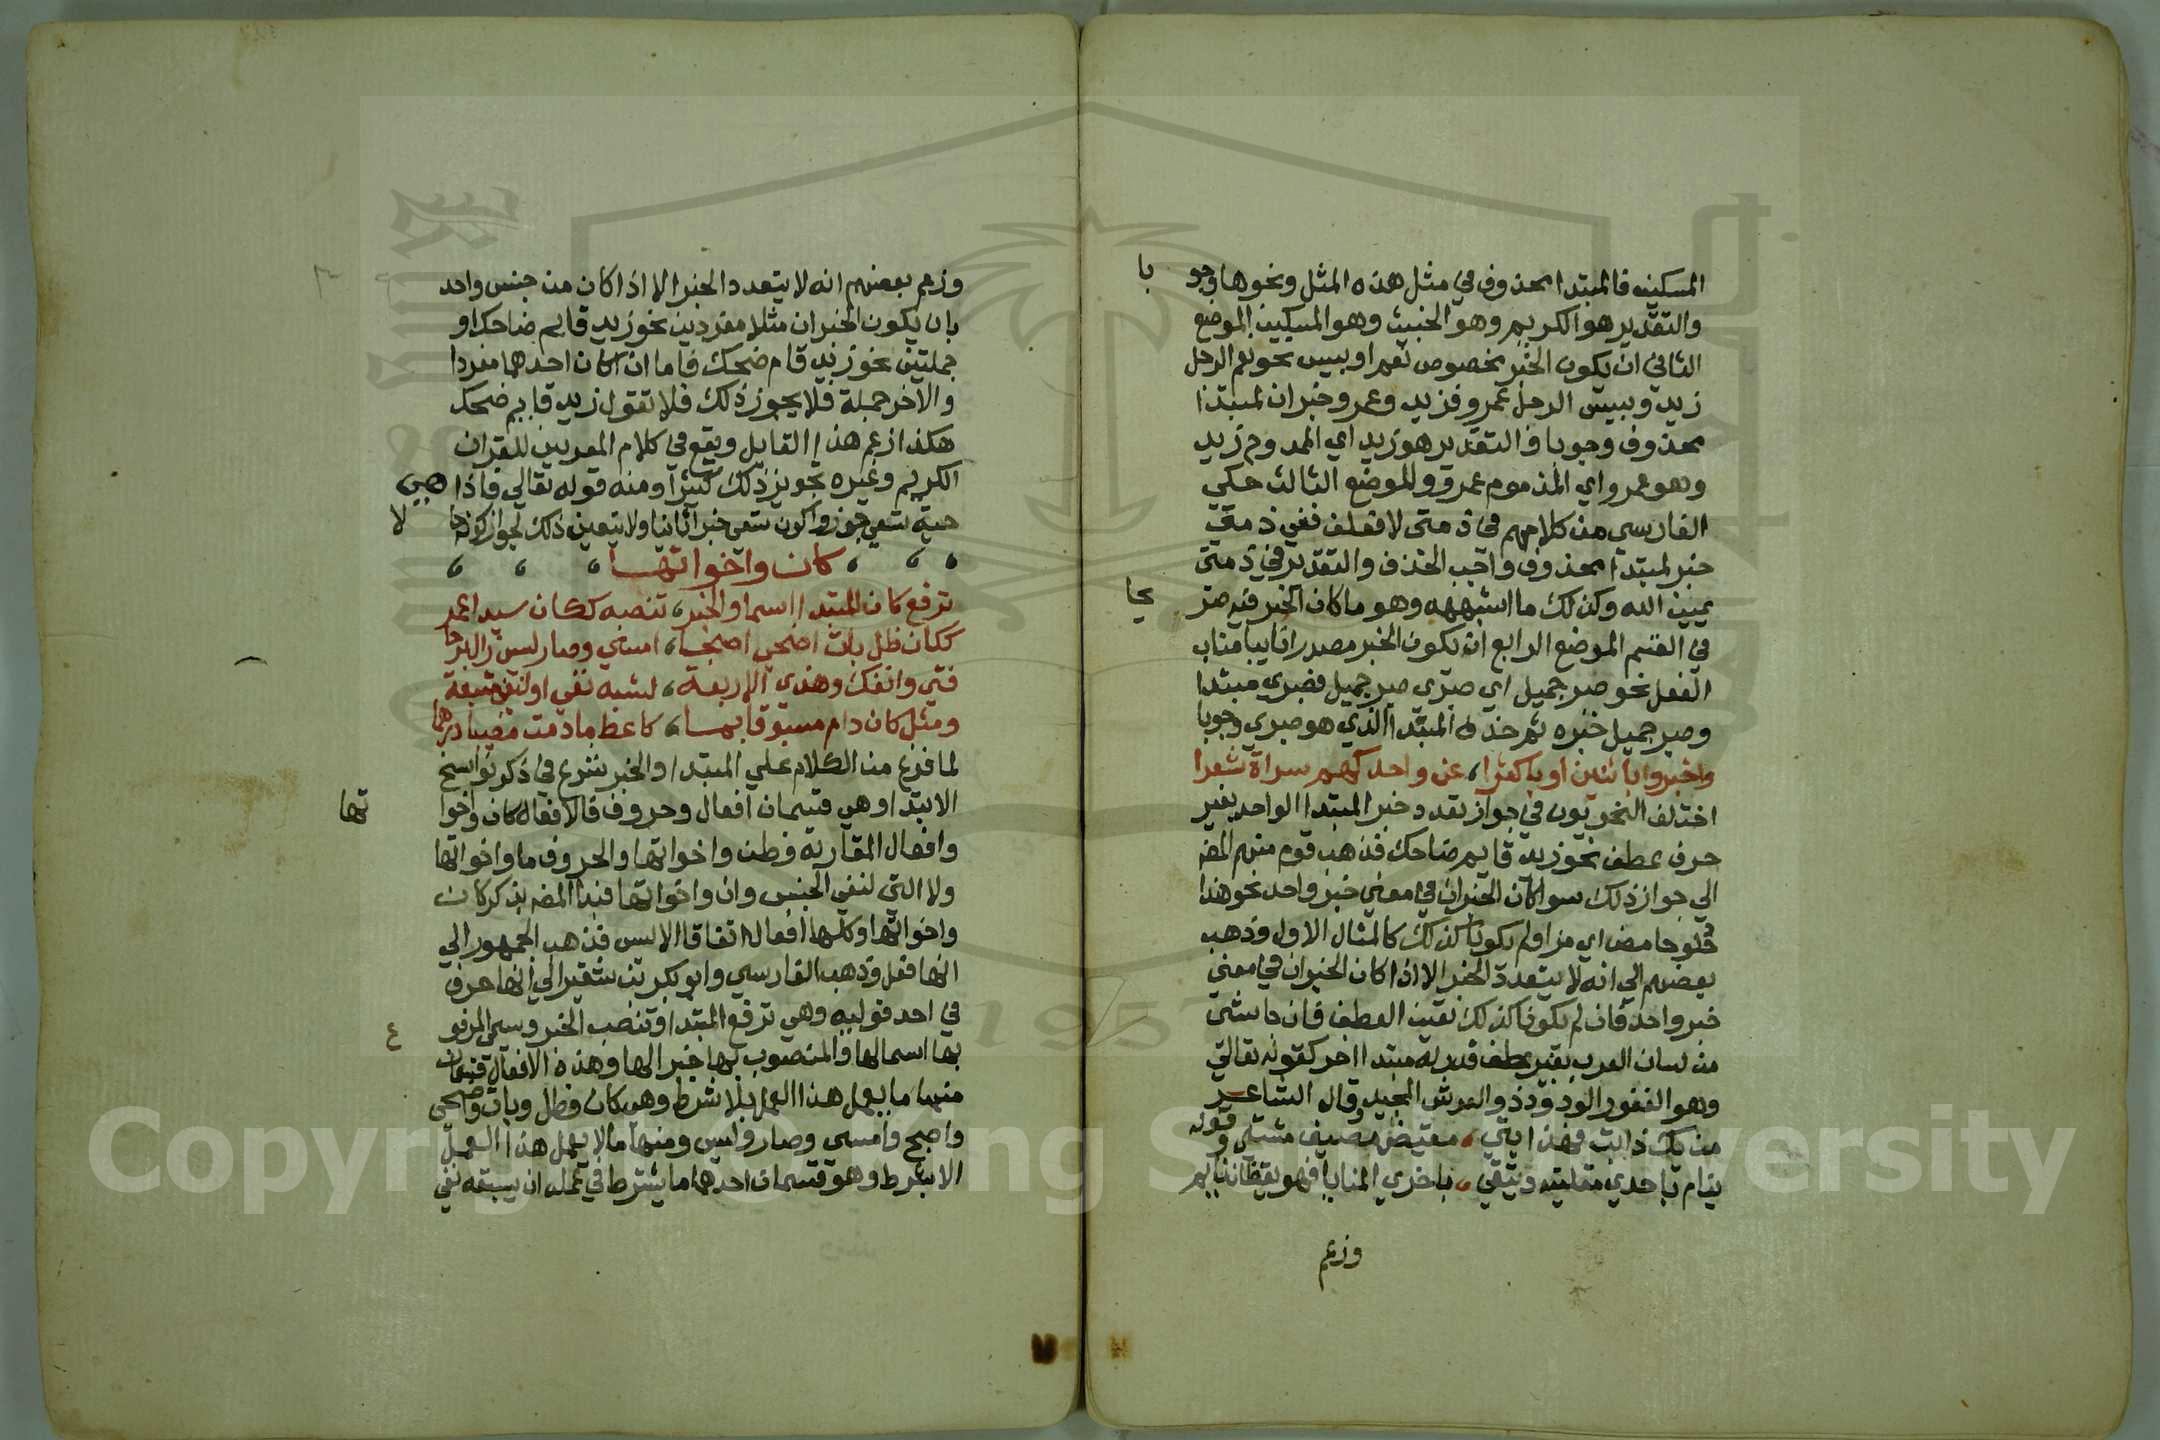 المسكين فالمبتدا محذوف في مثل هذه المثل ونحوها وجو
با
والتقدير هو الكريم وهو الخبيث وهو المسكين الموضع
الثاني ان يكون الخبر مخصوص نعم او بيس نحو نعم الرجل
زيد وبيس الرجل عمرو فزيد وعمرو خبران لمبتدا
محذوف وجوبا والتقدير هو زيد اي الممدوح زيد
وهو عمرو اي المذموم عمرو والموضع الثالث حكي
الفارسي من كلامهم في ذمتي لافعلن ففي ذمتي
خبر لمبتدا محذوف واجب الحذف والتقدير في ذمتي
يمين الله وكذلك ما اشبهه وهو ما كان الخبر فيه صر
يحا
في القسم الموضع الرابع ان يكون الخبر مصدرا نايبا مناب
الفعل نحو صبر جميل اي صبري صبر جميل فصبري مبتدا
وصبر جميل خبره ثم حذف المبتدا الذي هو صبري وجوبا
واخبروا باثنين او باكثرا، عن واحد كهم سراة شعرا
اختلف النحويون في جواز تعدد خبر المبتدا الواحد بغير
حرف عطف نحو زيد قايم ضاحك فذهب قوم منهم المص
الي جواز ذلك سوا كان الخبران في معني خبر واحد نحو هذا
حلو حامض اي مز او لم يكونا كذلك كالمثال الاول وذهب
بعضهم الي انه لا يتعدد الخبر الا اذا كان الخبران في معني
خبر واحد فان لم يكونا كذلك تعين العطف فان جا شي
من لسان العرب بغير عطف قدر له مبتدا اخر كقوله تعالي
وهو الغفور الودود ذو العرش المجيد وقال الشاعر
من يك ذا بت فهذا بتي، مقيض مصيف مشتي وقوله
ينام باحدي مقلتيه ويتقي، باخري المنايا فهو يقظان نايم
وزعم
وزعم بعضهم انه لا يتعدد الخبر الا اذا كان من جنس واحد
بان يكون الخبران مثلا مفردين نحو زيد قايم ضاحك او
جملتين نحو زيد قام ضحك فاما ان كان احدهما مفردا
والاخر جملة فلا يجوز ذلك فلا تقول زيد قايم ضحك
هكذا زعم هذا القايل ويقع في كلام المعربين للقران
الكريم وغيره تجويز ذلك كثيرا ومنه قوله تعالي فاذا هي
حية تسعي جوزوا كون تسعي خبرا ثانيا ولا يتعين ذلك لجواز كونه حا
لا
كان واخواتها
ترفع كان المبتدا اسما والخبر، تنصبه ككان سيدا عمر
ككان ظل بات اضحي اصبحا، امسي وصار ليس زال برحا
فتي وانفك وهذي الاربعة، لشبه نفي او لنفي متبعة
ومثل كان دام مسبوقا بما، كاعط ما دمت مصيبا درهما
لما فرغ من الكلام علي المبتدا والخبر شرع في ذكر نواسخ
الابتدا وهي قسمان افعال وحروف فالافعال كان واخوا
تها
وافعال المقاربة وظن واخواتها والحروف ما واخواتها
ولا التي لنفي الجنس وان واخواتها فبدا المص بذكر كان
واخواتها وكلها افعال اتفاقا الا ليس فذهب الجمهور الي
انها فعل وذهب الفارسي وابو بكر بن شقير الي انها حرف
في احد قوليه وهي ترفع المبتدا وتنصب الخبر وسمي المرفو
ع
بها اسما لها والمنصوب بها خبرا لها وهذه الافعال قسمان
منها ما يعمل هذا العمل بلا شرط وهي كان وظل وبات واضحي
واصبح وامسي وصار وليس ومنها ما لا يعمل هذا العمل
الا بشرط وهو قسمان احدهما ما يشترط في عمله ان يسبقه نفي
Copyright © King Saud University
1957